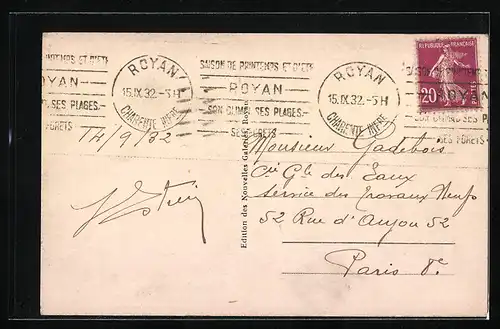 SAISON DE PRINTEMPS ET D'ÉTÉ
ROYAN
SON CLIMAT, SES PLAGES.
SES FORETS
ROYAN
15.IX.32.-5H
CHARENTE INFRE
SAISON DE PRINTEMPS ET D'ÉTÉ
ROYAN
SON CLIMAT, SES PLAGES.-
SES FORETS
ROYAN
15.IX.32.-5H
CHARENTE INFRE
REPUBLIQUE FRANÇAISE
20
POSTES
14/9/32
Edition des Nouvelles Galeries, Royan
Monsieur Gadebois
Cie Gle des Eaux
Service des Travaux Neufs
52 Rue d'Anjou 52
Paris 8e